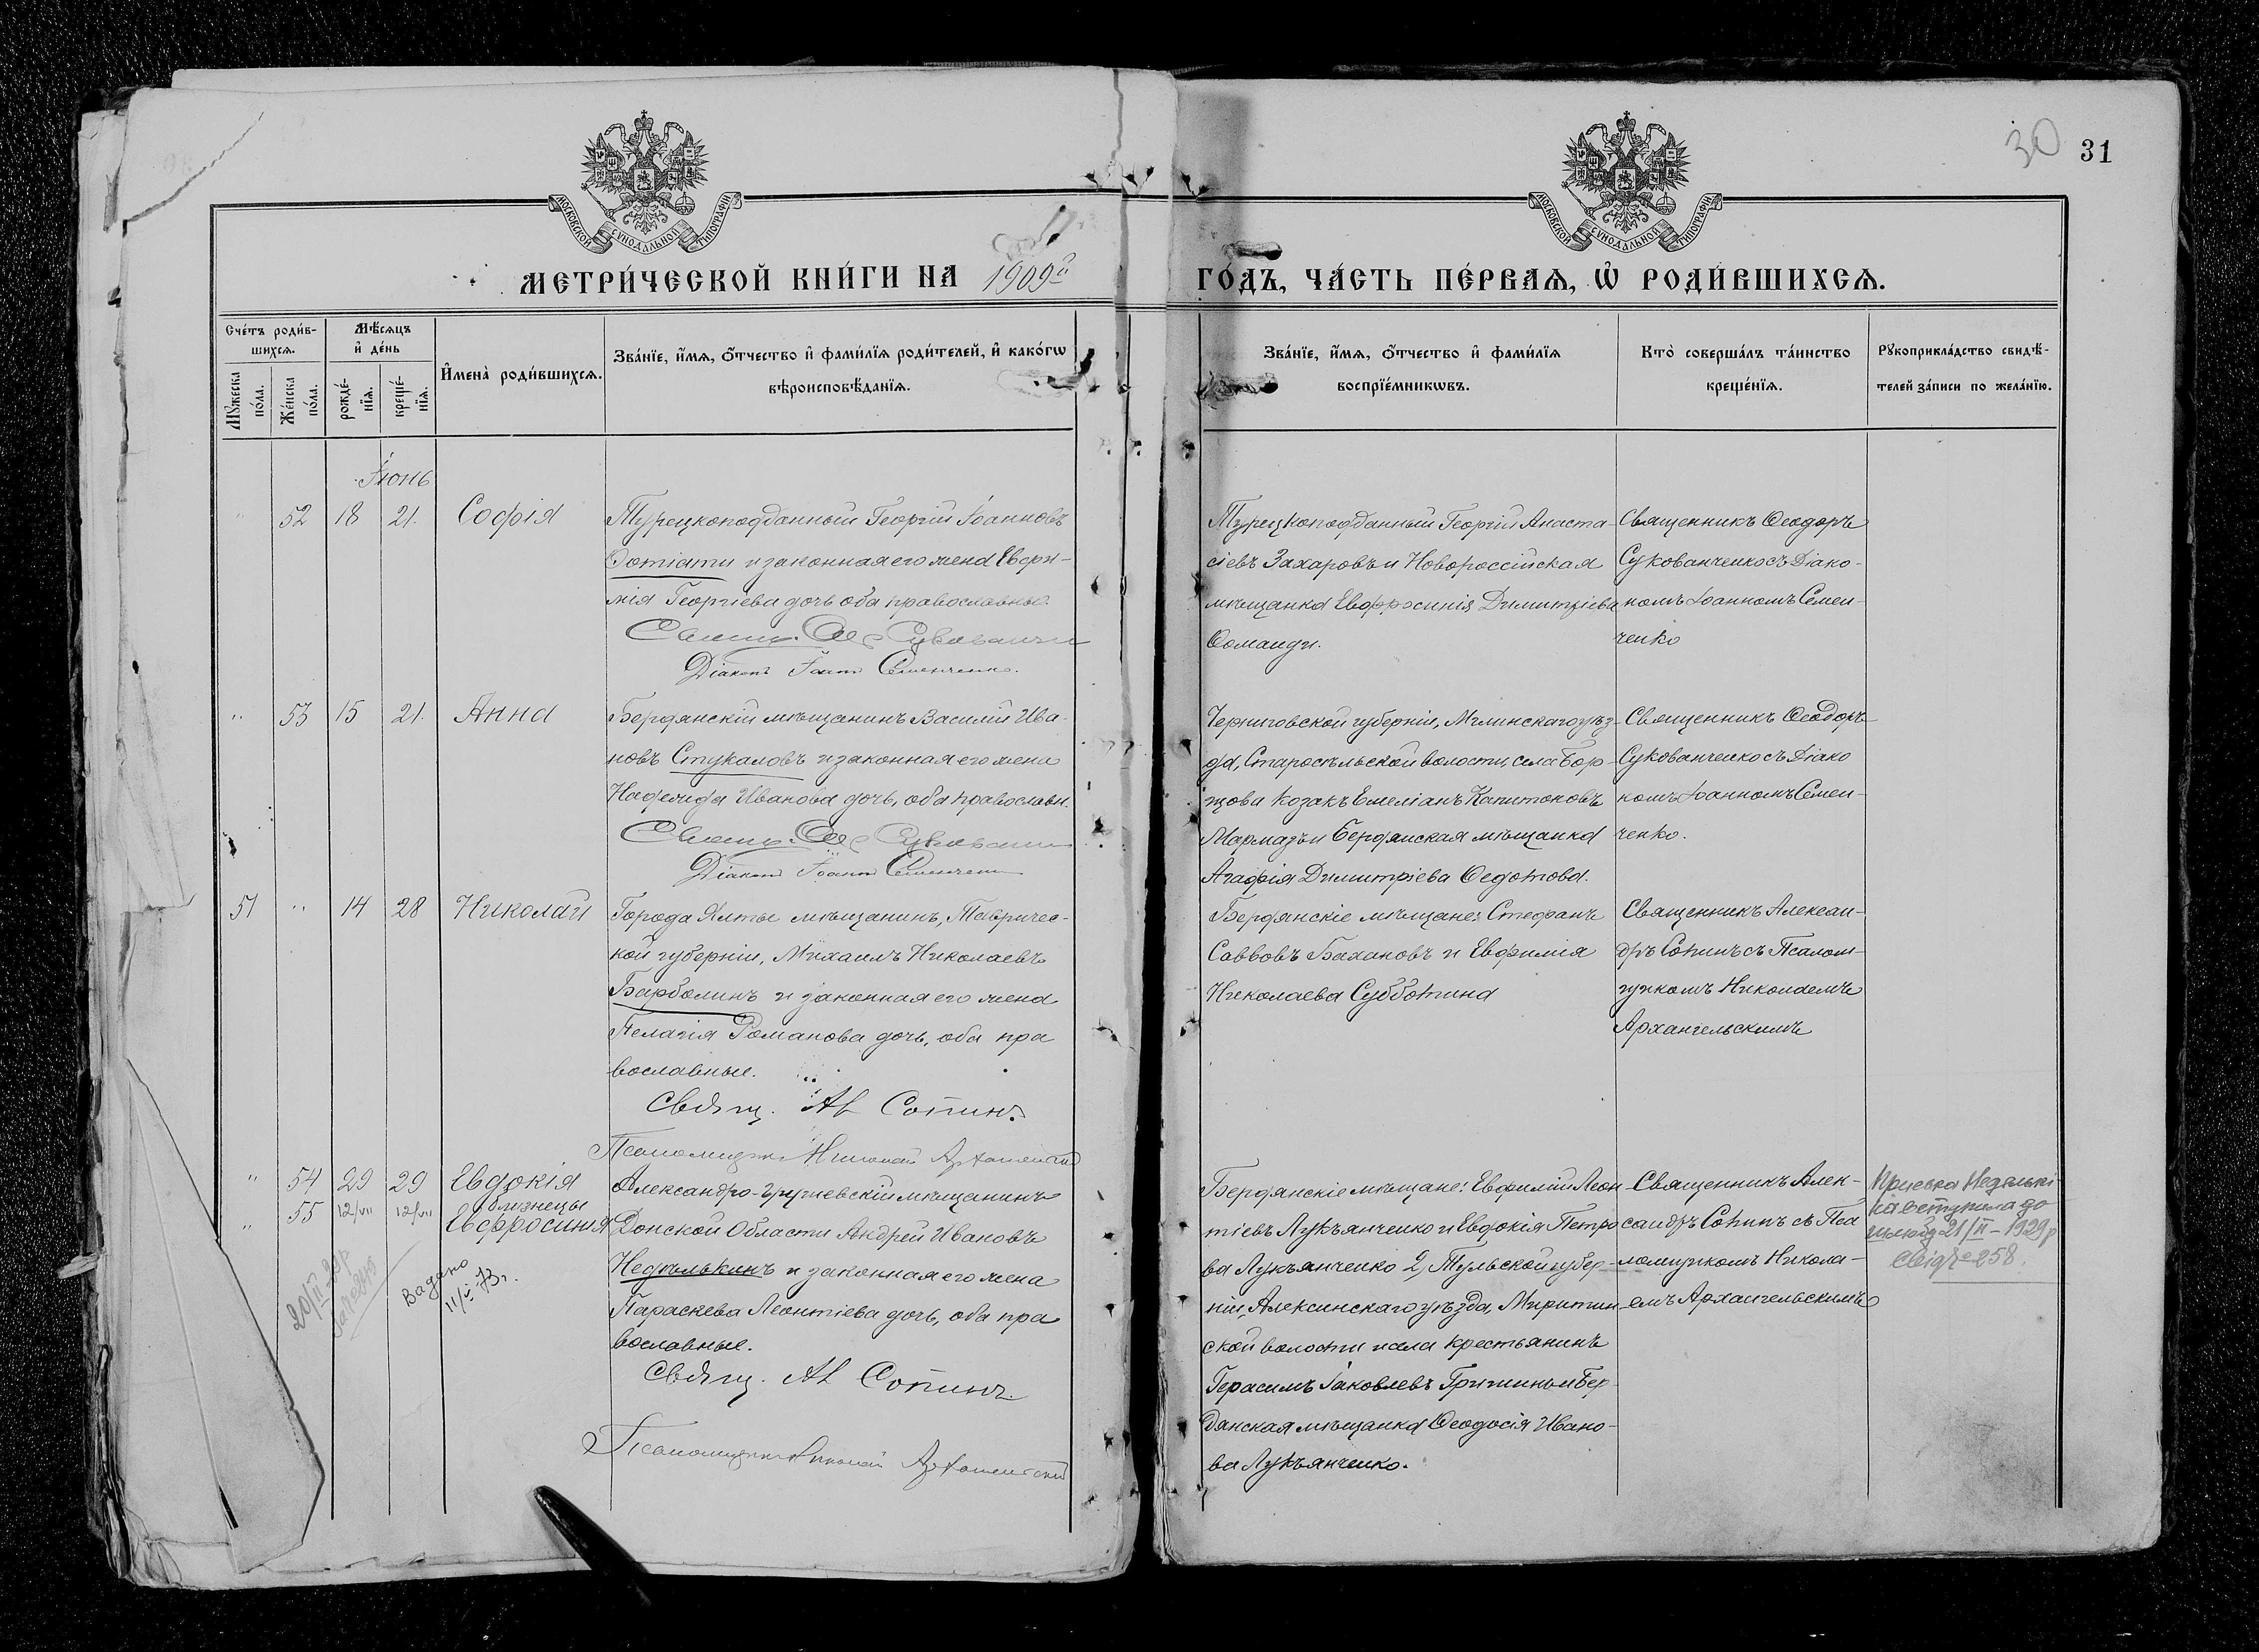 30 31
МОСКОВСКОЙ СѴНОДАЛЬНОЙ ТИПОГРАФІИ
МОСКОВСКОЙ СѴНОДАЛЬНОЙ ТИПОГРАФІИ
МЕТРИ́ЧЕСКОЙ КНИ́ГИ НА 1909й ГО́ДЪ, ЧА́СТЬ ПЕ́РВАѦ, Ѡ҆ РОДИ́ВШИХСѦ.
Сче́тъ роди́в-
шихсѧ.
Мꙋ́жеска
по́ла.
Же́нска
по́ла.
Мѣ́сѧцъ
и҆ де́нь
рожде́-
нїѧ.
креще́-
нїѧ.
И҆мена̀ роди́вшихсѧ.
Зва́нїе, и҆́мѧ, ѻ҆́тчество и҆ фами́лїѧ роди́телей, и҆ како́гѡ
вѣроисповѣ́данїѧ.
Зва́нїе, и҆́мѧ, ѻ҆́тчество и҆ фами́лїѧ
воспрїе́мникѡвъ.
Кто̀ соверша́лъ та́инство
креще́нїѧ.
Рꙋкоприкла́дство свидѣ́-
телей за́писи по жела́нїю.
Іюнь
" 52 18 21. Софія
Турецкоподданный Георгій Іоанновъ
Фотіати и законная его жена Евфи-
мія Георгіева дочь оба православные.
Діаконъ Іоаннъ Семенченко.
Турецкоподданный Георгій Анаста-
сіевъ Захаровъ и Новороссійская
мѣщанка Евфросинія Димитріева
Ѳоманди.
Священникъ Ѳеодоръ
Сукованченко съ Діако-
номъ Іоанномъ Семен-
ченко
" 53 15 21. Анна
Бердянскій мѣщанинъ Василій Ива-
новъ Стукаловъ и законная его жена
Надежда Иванова дочь, оба православн.
Діаконъ Іоаннъ Семенченко
Черниговской губерніи, Мглинскаго уѣз-
да, Старосѣльской волости, села Бор-
щова козакъ Емеліанъ Капитоновъ
Мармазъ и Бердянская мѣщанка
Агафія Димитріева Ѳедотова.
Священникъ Ѳеодоръ
Сукованченко съ Діако
номъ Іоанномъ Семен-
ченко.
51 " 14 28 Николай
Города Ялты мѣщанинъ, Тавричес-
кой губерніи, Михаилъ Николаевъ
Барболинъ и законная его жена
Пелагія Романова дочь, оба пра
вославные.
Свящ. Ал Сопинъ
Псаломщикъ Николай Архангельский
Бердянскіе мѣщане: Стефанъ
Саввовъ Бахановъ и Евфимія
Николаева Субботина
Священникъ Алексан-
дръ Сопинъ съ Псалом-
щикомъ Николаемъ
Архангельскимъ
" 54 29 29 Евдокія
близнецы
" 55 12/VII 12/VII Евфросинія
Александро-Грушевскій мѣщанинъ
Донской Области Андрей Ивановъ
Недѣлькинъ и законная его жена
Параскева Леонтіева дочь, оба пра
вославные.
Свящ. Ал Сопинъ.
Псаломщикъ Николай Архангельский
Видано
11/V 73 г.
Бердянскіе мѣщане: Евфимій Леон-
тіевъ Лукъянченко и Евдокія Петро
ва Лукъянченко 2, Тульской губер-
ніи, Алексинскаго уѣзда, Миритин
ской волости и села крестьянинъ
Герасимъ Іаковлевъ Гришинъ и Бер
дянская мѣщанка Ѳеодосія Ивано-
ва Лукъянченко.
Священникъ Алек-
сандръ Сопинъ съ Пса
ломщикомъ Никола-
емъ Архангельскимъ
вступила до
шлюбу 21/II-1929 р
258.